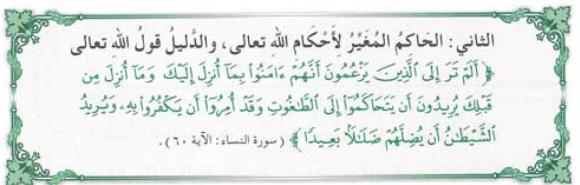 الثاني: الحَاكِمُ المُغَيِّرُ لِأَحْكَامِ اللهِ تعالى، والدَّلِيلُ قولُ اللهِ تعالى
﴿ أَلَمْ تَرَ إِلَى ٱلَّذِينَ يَزْعُمُونَ أَنَّهُمْ ءَامَنُوا۟ بِمَآ أُنزِلَ إِلَيْكَ وَمَآ أُنزِلَ مِن
قَبْلِكَ يُرِيدُونَ أَن يَتَحَاكَمُوٓا۟ إِلَى ٱلطَّـٰغُوتِ وَقَدْ أُمِرُوٓا۟ أَن يَكْفُرُوا۟ بِهِۦ وَيُرِيدُ
ٱلشَّيْطَـٰنُ أَن يُضِلَّهُمْ ضَلَـٰلًۢا بَعِيدًا ﴾ (سورة النساء: الآية ٦٠).